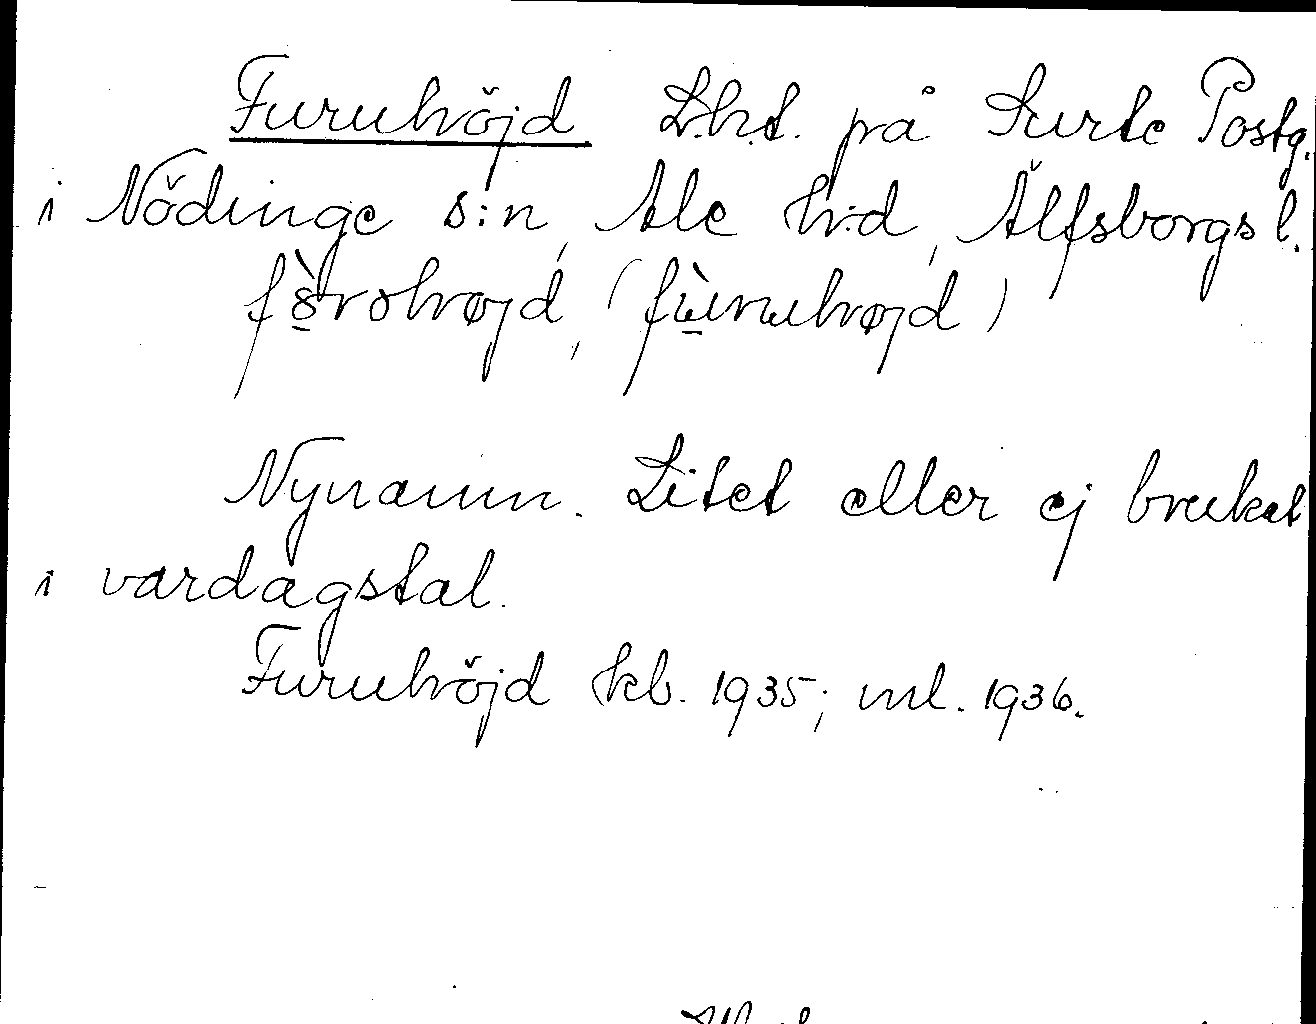 Furuhöjd Lht. på Surte Postg.
i Nödinge s:n, Ale h:d, Älfsborgs l.
fòrohøjd, (fùruhøjd)
Nynamn. Litet eller ej brukat
i vardagstal.
Furuhöjd kb. 1935; ml. 1936.